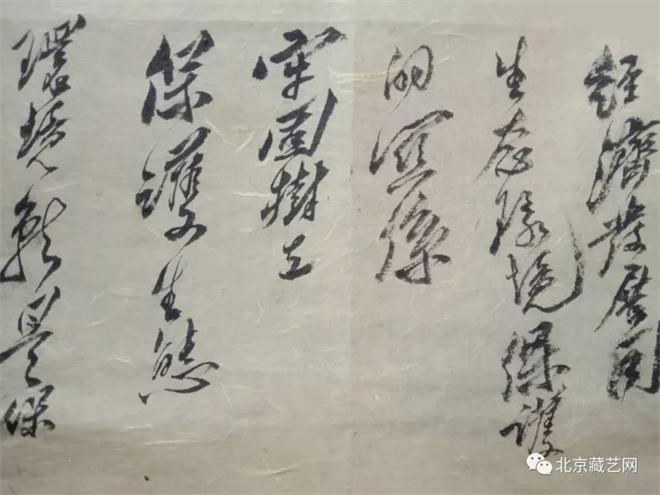 經濟發展同
生态環境保護
的關係
牢固樹立
保護生態
環境就是保
北京藏艺网